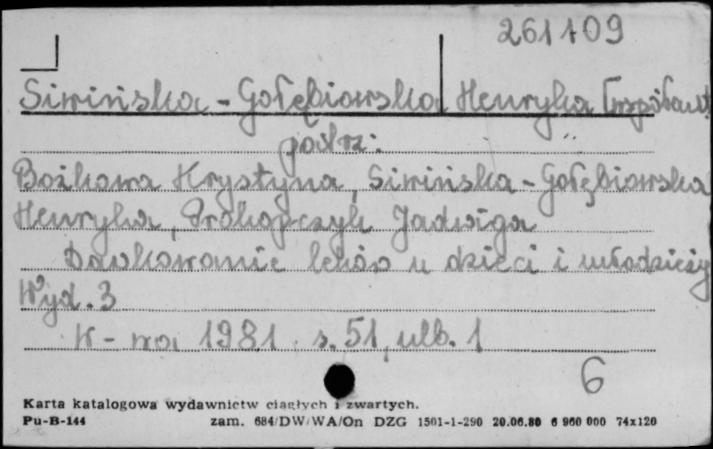 261109
Siwińska-Gołębiowska Henryka [współaut.
patrz:
Bożkowa Krystyna, Siwińska-Gołębiowska
Henryka, Prokopczyk Jadwiga
Dawkowanie leków u dzieci i młodzieży
Wyd. 3
W-wa 1981 s. 51, ulb. 1
6
Karta katalogowa wydawnictw ciągłych i zwartych.
Pu-B-144 zam. 684/DW/WA/On DZG 1501-1-290 20.06.80 6 960 000 74x120